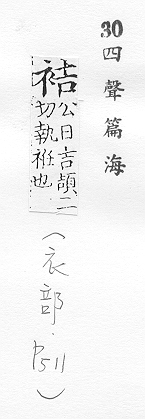 30四聲篇海
袺公日吉頡二
切執袵也
（衣部．P511）